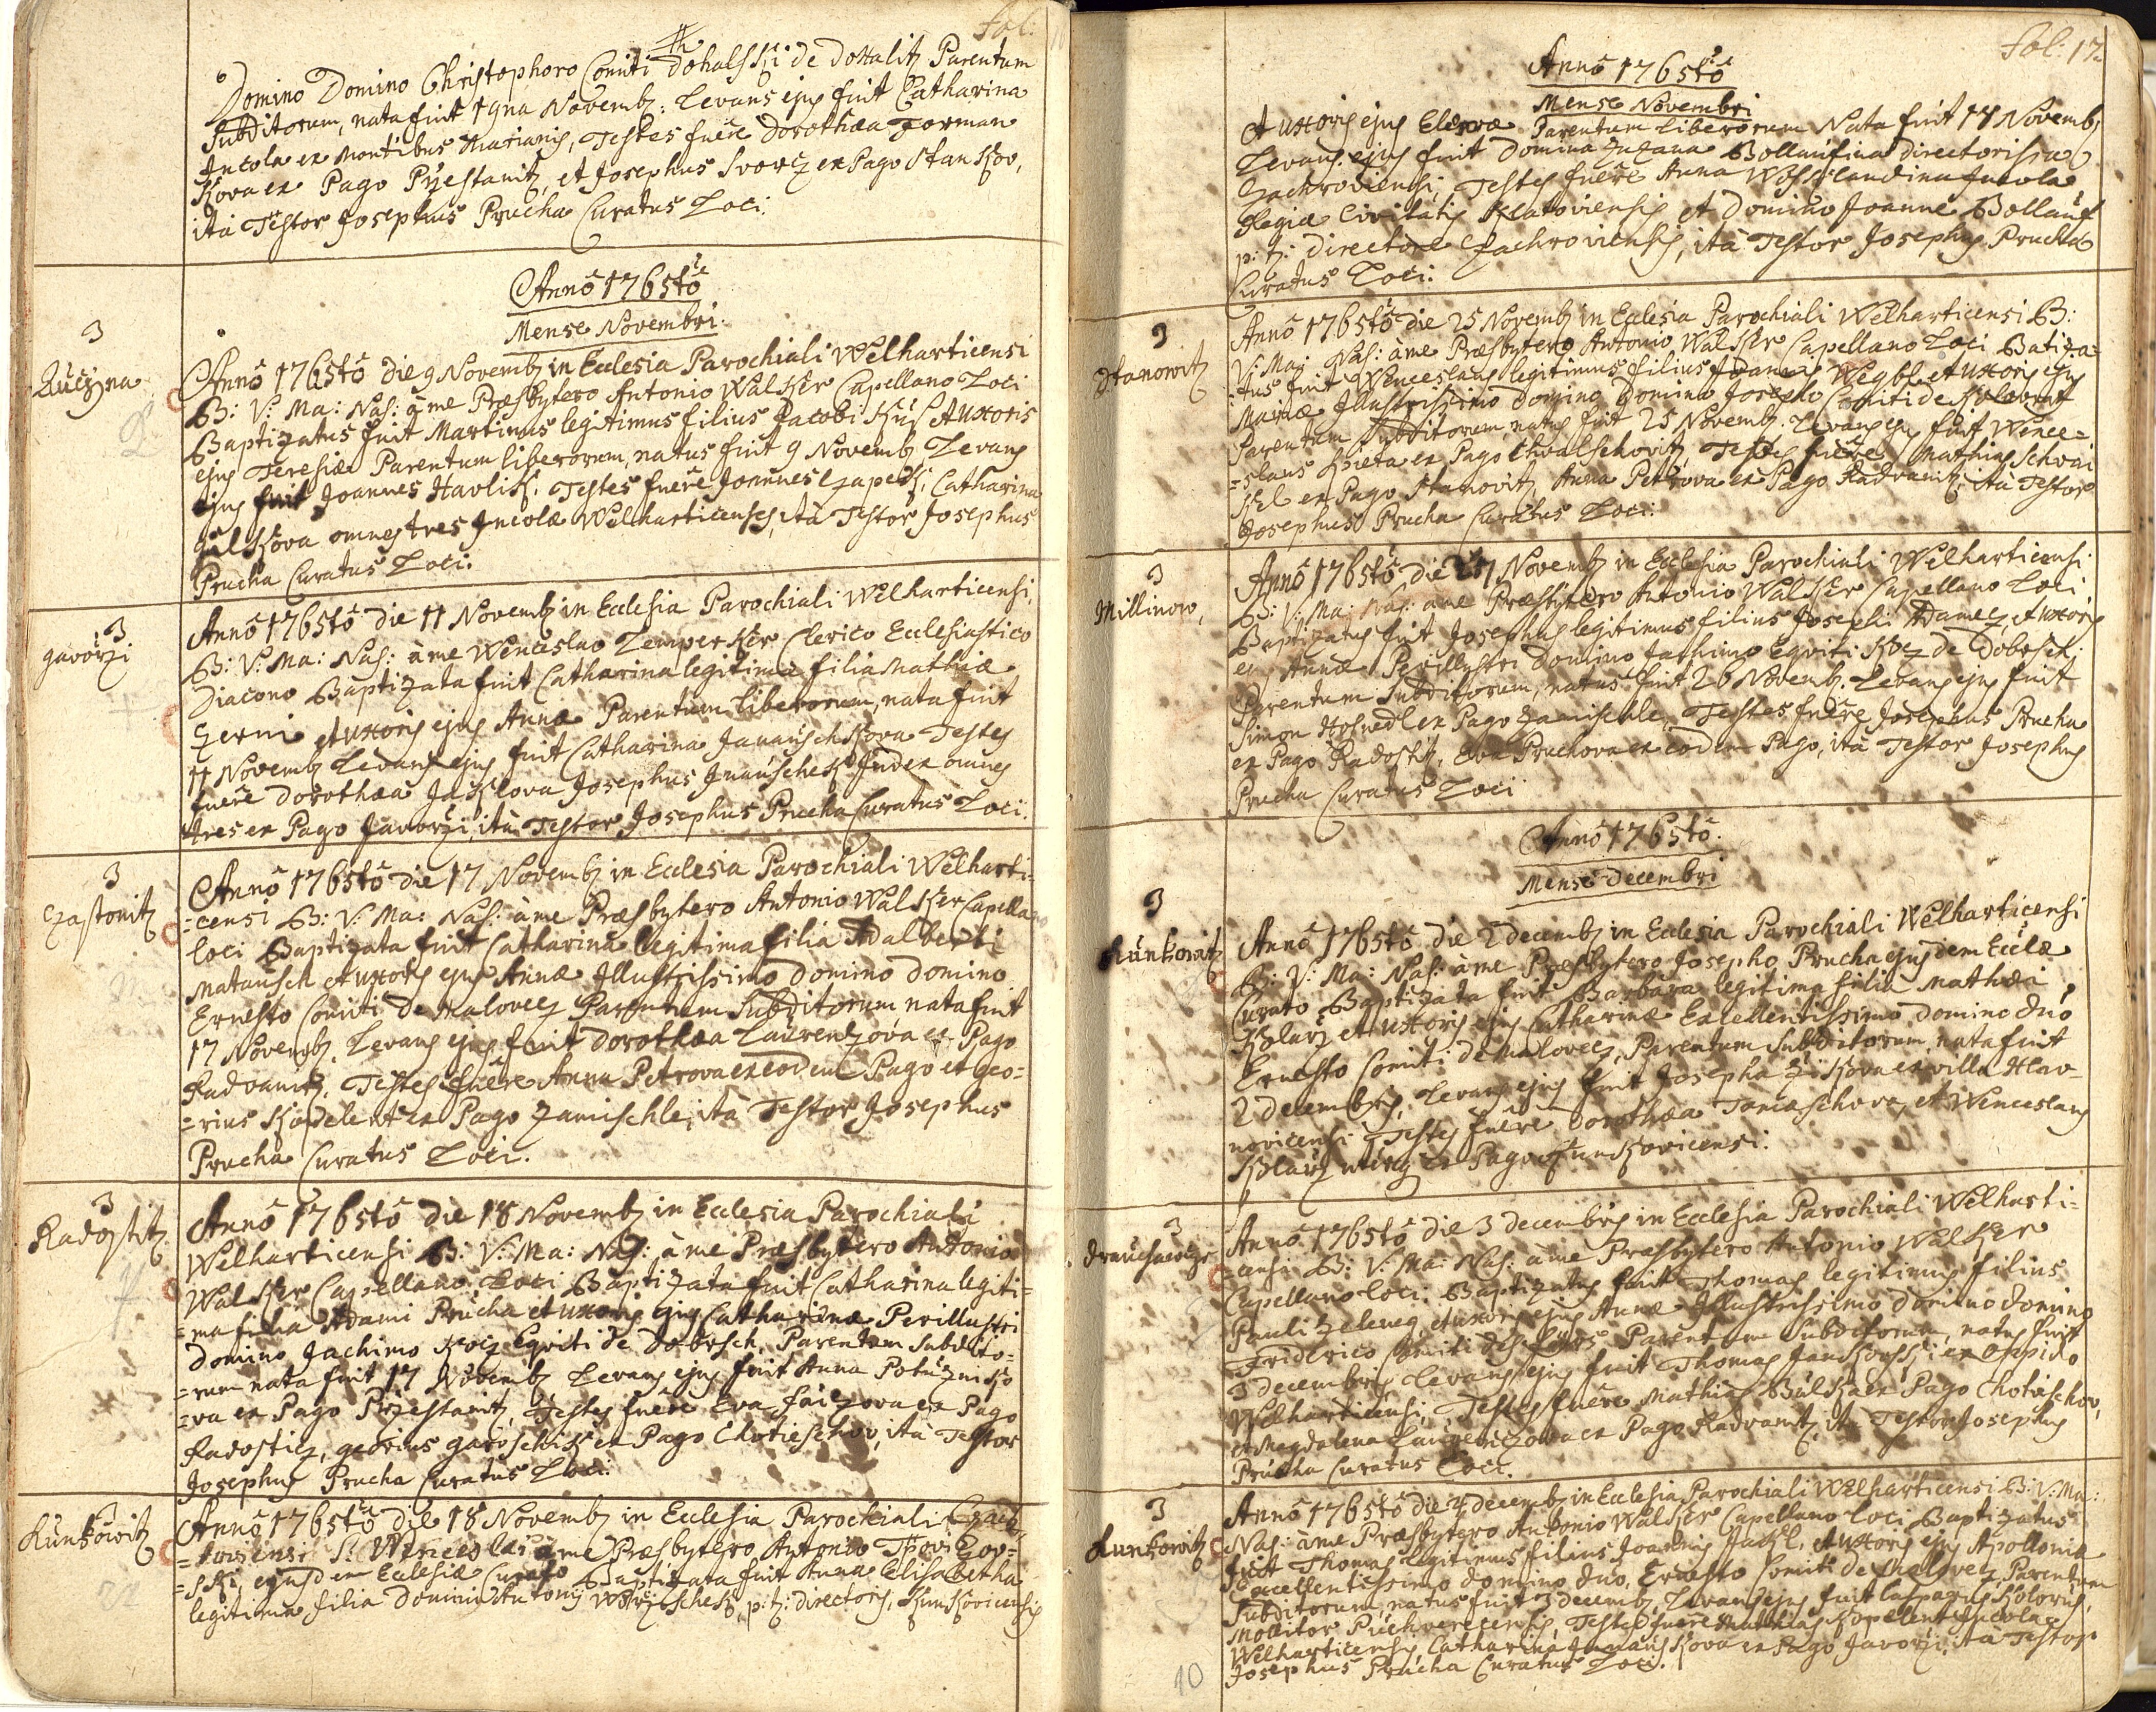 Fol:
Domino Domino Christophoro Comiti Dohalsski de Dohalitz Parentum
Subditorum, nata fuit 1gna Novemb: Levans ejus fuit Catharina
Incola ex Montibus Marianis, Testes fuere Dorothaea Forman
kova ex Pago Pÿestanitz, et Josephus Svorcz ex Pago Stankov,
ita Testor Josephus Prucha Curatus Loci.
Anno 1765to
Mense Novembri.
3
Anno 1765to die 9 Novemb in Ecclesia Parochiali Welharticensi
B: V: Ma: Nas: à me Praesbytero Antonio Walker Capellano Loci
Baptizatus fuit Martinus legitimus filius Jacobi et Uxoris
ejus Teresiae Parentum liberorum, natus fuit 9 Novemb Levans
ejus fuit Joannes Havlik. Testes fuere Joannes Czapek, Catharina
omnes tres Incolae Welharticenses, ita Testor Josephus
Prucha Curatus Loci.
3
Javorzi
Anno 1765to die 11 Novemb in Ecclesia Parochiali Welharticensi,
B: V: Ma: Nas: à me Wenceslao Zemperker Clerico Ecclesiastico
Diacono Baptizata fuit Catharina legitima filia Mathiae
Czerni et Uxoris ejus Annae Parentum liberorum, nata fuit
11 Novemb Levans ejus fuit Catharina Janauschkova Testes
fuere Dorothaea Jaklova Josephus Janauschek Judex omnes
tres ex Pago Javorzi, ita Testor Josephus Prucha Curatus Loci.
3
Czastonitz
Anno 1765to die 17 Novemb in Ecclesia Parochiali Welharti=
=censi B: V: Ma: Nas: à me Praesbytero Antonio Walker Capellano
loci Baptizata fuit Catharina legitima filia Adalberti
Matausch et Uxoris ejus Annae Illustrissimo Domino Domino
Ernesto Comiti de Malovecz Parentum Subditorum nata fuit
17 Novemb. Levans ejus fuit Dorothaea Laurenzova ex Pago
Radvanitz, Testes fuere Anna Petrova ex eodem Pago et Geo=
=rius Kopelent ex Pago Zamischle, ita Testor Josephus
Prucha Curatus Loci.
3
Radostitz
Anno 1765to die 18 Novemb in Ecclesia Parochiali
Welharticensi B: V: Ma: Nas: à me Praesbytero Antonio
Walker Capellano Loci Baptizata fuit Catharina legiti=
=ma filia Adami Prucha et Uxoris ejus Catharinae Perillustri
Domino Jachimo Kocz Equiti de Dobrsch, Parentum Subdito=
=rum nata fuit 17 Novemb Levans ejus fuit Anna Potuzniko
=va ex Pago Przestanitz, Testes fuere Eva ex Pago
Radosticz, Georius Garoschik ex Pago Chotieschov, ita Testor
Josephus Prucha Curatus Loci.
3
Kunkowitz
Anno 1765to die 18 Novemb in Ecclesia Parochiali Czach=
=roviensi S: Wenceslai à me Praesbytero Antonio
=ski, ejusdem Ecclesiae Curato Baptizata fuit Anna Elisabetha
legitima filia Domini Antonij, p: t: Directoris, Kunkovicensis
Fol: 17
Anno 1765to
Mense Novembri
et Uxoris ejus Parentum Liberorum Nata fuit 17 Novemb
Levans ejus fuit Domina Zuzana Bollaufina directorissa
Czachroviensi, Testes fuere Anna Incola
Regiae Civitatis Klatoviensis et Domino Joanne Bollauf
p: t: Directore Czachroviensis, ita Testor Josephus Prucha
Curatus Loci.
3
Stanowitz
Anno 1765to die 25 Novemb in Ecclesia Parochiali Welharticensi B:
V: Ma: Nas: à me Praesbytero Antonio Walker Capellano Loci Batiza=
=tus fuit Wenceslaus legitimus filius Joannis et Uxoris ejus
Mariae Illustrissimo Domino Domino Josepho Comiti de Kolovrat
Parentum Subditorum, natus fuit 25 Novemb. Levans ejus fuit Wence=
=slaus Kvieta ex Pago Chvalschovitz, Testes fuere Mathias
ex Pago Stanovitz, Anna Petrova ex Pago Radvanitz, ita Testor
Josephus Prucha Curatus Loci.
3
Millinow,
Anno 1765to die 27 Novemb in Ecclesia Parochiali Welharticensi
B: V: Ma: Nas: à me Praesbytero Antonio Walker Capellano Loci
Baptizatus fuit Josephus legitimus filius Josephi Adamecz, et Uxoris
ej Annae Perillustri Domino Jachimo Equiti Kocz de Dobrsch.
Parentum Subditorum, natus fuit 26 Novemb. Levans ejus fuit
Simon Hosnedl ex Pago Zamischle, Testes fuere Josephus Prucha
ex Pago Radostitz, Eva Pruchova ex eodem Pago, ita Testor Josephus
Prucha Curatus Loci
Anno 1765to.
Mense Decembri
3
Kunkowitz
Anno 1765to die 2 Decemb in Ecclesia Parochiali Welharticensi
B: V: Ma: Nas: à me Praesbytero Josepho Prucha ejusdem Ecclae
Curato Baptizata fuit Barbara legitima filia Mathaei
Kolarz et Uxoris ejus Catharinae Excellentissimo Domino Dno
Ernesto Comiti de Malovecz, Parentum Subditorum, nata fuit
2 Decembris, Levans ejus fuit Josepha ex villa Hlav=
novicensi Testes fuere Dorothaea Tomaschova, et Wenceslaus
Kolarz ex Pago Kunkovicensi.
3
Anno 1765to die 3 Decembris in Ecclesia Parochiali Welharti=
=censi B: V: Ma: Nas: à me Praesbytero Antonio Walker
Capellano loci. Baptizatus fuit Thomas legitimus filius
Pauli Zeleneg, et Uxoris ejus Annae Illustrissimo Domino Domino
Friderico Comiti Parentum Subditorum, natus fuit
3 Decembris Levans ejus fuit Thomas Jankovski ex Oppido
Welharticensi, Testes fuere Mathias Bulka ex Pago Chotieschov,
et Magdalena Laurenczova ex Pago Radvanitz, ita Testor Josephus
Prucha Curatus Loci.
3
Kunkowitz
Anno 1765to die 4 Decemb in Ecclesia Parochiali Welharticensi B: V: Ma:
Nas: à me Praesbytero Antonio Walker Capellano loci Baptizatus
fuit Thomas legitimus filius Joannis Jakl, et Uxoris ejus Apollonia
Excellentissimo Domino Dno, Ernesto Comiti de Malovecz, Parentum
Subditorum, natus fuit 3 Decemb. Levans ejus fuit Casparus
Mollitor Puchverecensis, Testes fuere Mathias Kopelent Incola
Welharticensis, Catharina Janauskova ex Pago Javorzi, ita Testor
Josephus Prucha Curatus Loci.
10